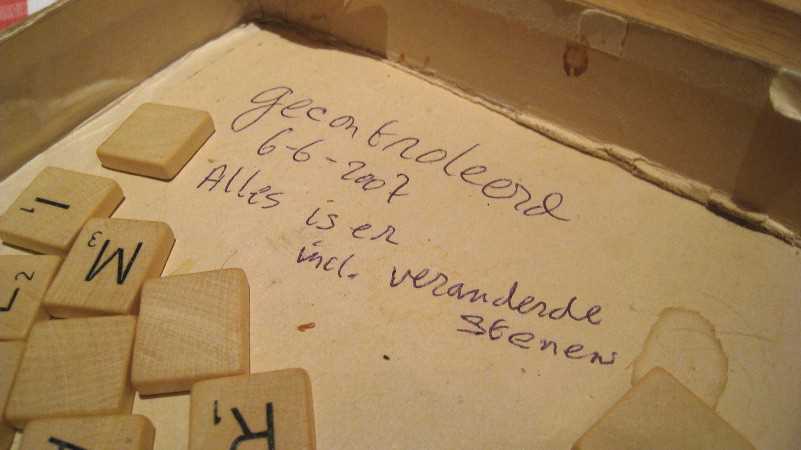 gecontroleerd
6-6-2007
Alles is er
incl. veranderde
stenen
I1
M3
L2
R1